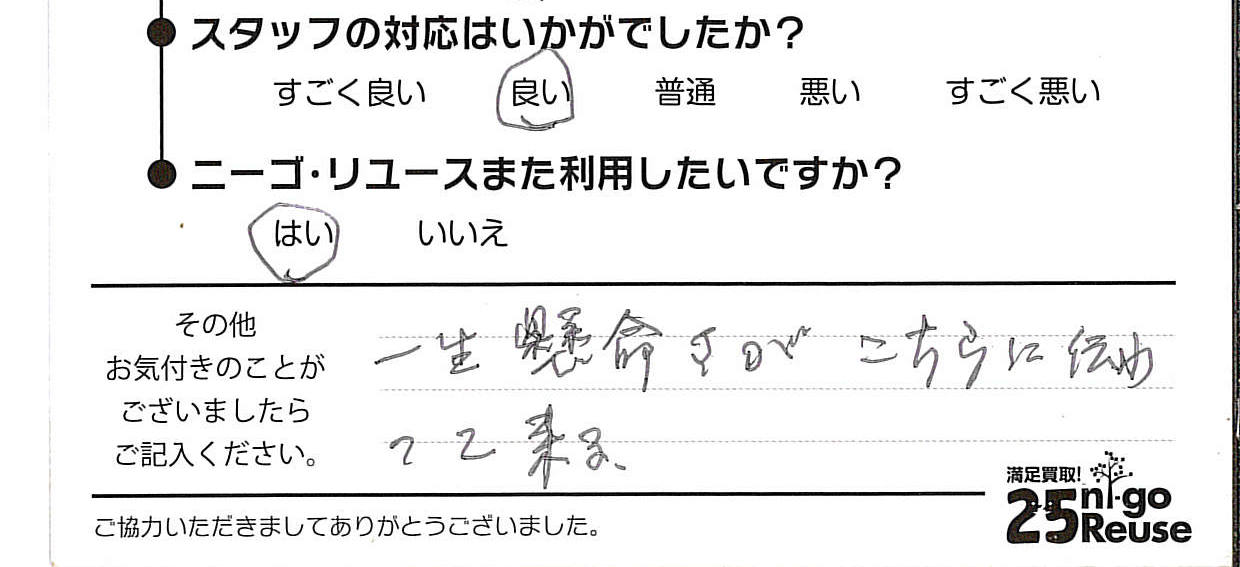 スタッフの対応はいかがでしたか?
すごく良い 良い 普通 悪い すごく悪い
ニーゴ・リユースまた利用したいですか?
はい いいえ
その他
お気付きのことが
ございましたら
ご記入ください。
一生懸命さのが こちらに伝わ
って来る、
ご協力いただきましてありがとうございました。
満足買取!
25 ni-go
Reuse